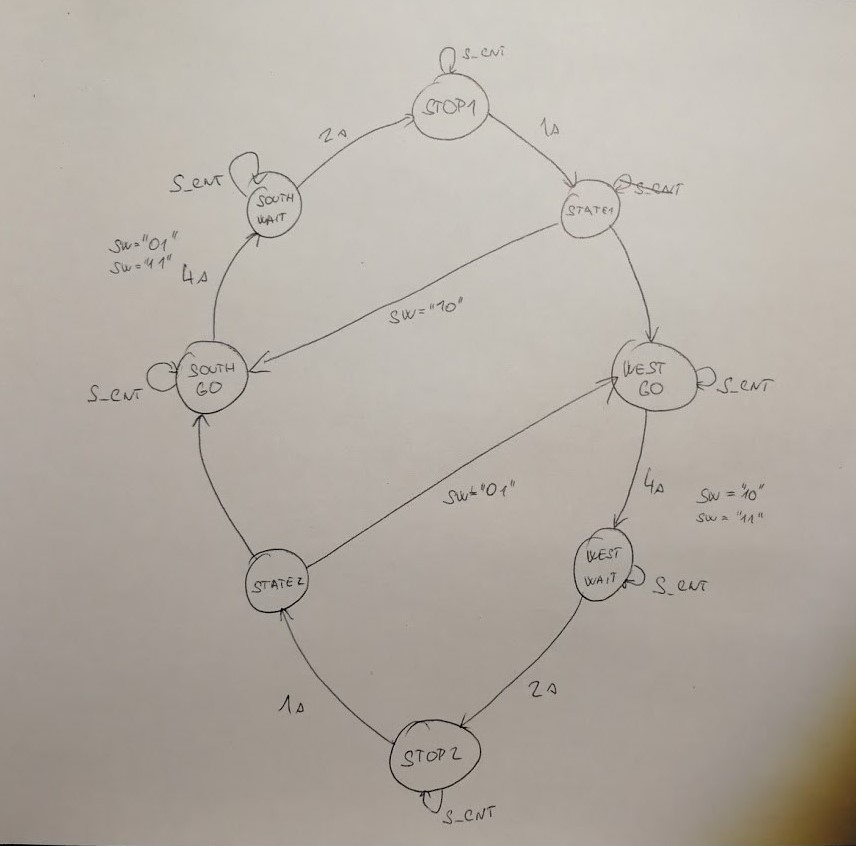 S_CNT
STOP1
2s
1s
S_CNT
S_CNT
SOUTH
WAIT
STATE1
SW="01"
SW="11"
4s
SW="10"
SOUTH
GO
WEST
GO
S_CNT
S_CNT
SW="01"
4s
SW="10"
SW="11"
WEST
WAIT
S_CNT
STATE2
1s
2s
STOP2
S_CNT